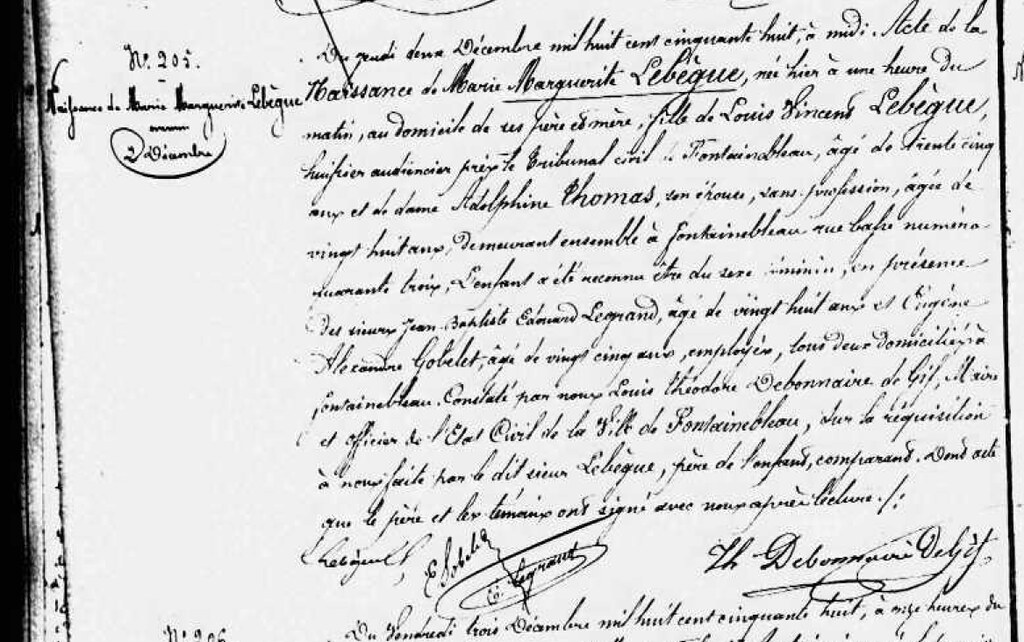 N° 205.
Naissance de Marie Marguerite Lebègue
2 Décembre
Du jeudi deux Décembre mil huit cent cinquante huit, à midi. Acte de la
Naissance de Marie Marguerite Lebègue, née hier à une heure du
matin, au domicile de ses père et mère, fille de Louis Vincent Lebègue,
huissier audiencier près le Tribunal civil de Fontainebleau, âgé de trente cinq
ans et de dame Adelphine Thomas, son épouse, sans profession, âgée de
vingt huit ans, demeurant ensemble à Fontainebleau rue basse numéro
quarante trois; L'enfant a été reconnu être du sexe féminin, en présence
des sieurs Jean Baptiste Edouard Legrand, âgé de vingt huit ans et Eugène
Alexandre Gobelet, âgé de vingt cinq ans, employés, tous deux domiciliés à
Fontainebleau. Constaté par nous Louis Théodore Debonnaire de Gif, Maire
et officier de l'Etat Civil de la Ville de Fontainebleau, sur la réquisition
à nous faite par le dit sieur Lebègue, père de l'enfant, comparant. Dont acte
que le père et les témoins ont signé avec nous après lecture. /:
Lebègue E. Gobelet E. Legrand Th Debonnaire de Gif
N° 206
Du Vendredi trois Décembre mil huit cent cinquante huit, à onze heures du